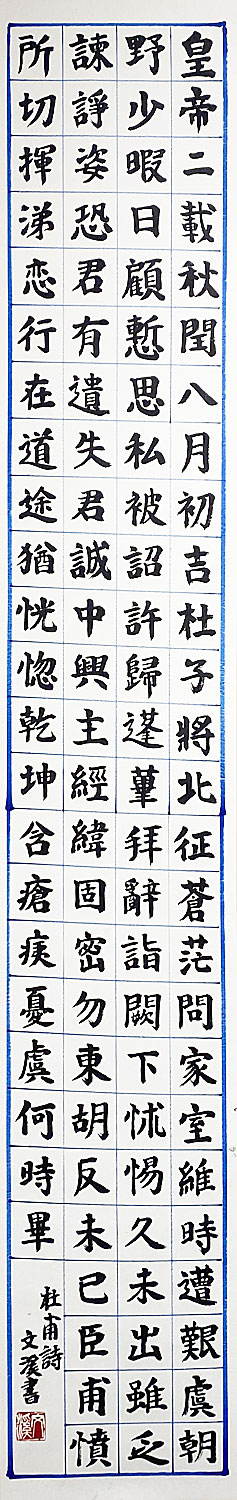 皇帝二載秋閏八月初吉杜子將北征蒼茫問家室維時遭艱虞朝
野少暇日顧慙思私被詔許歸蓬蓽拜辭詣闕下怵惕久未出雖乏
諫諍姿恐君有遺失君誠中興主經緯固密勿東胡反未已臣甫憤
所切揮涕恋行在道途猶恍惚乾坤含瘡痍憂虞何時畢
杜甫詩
文書